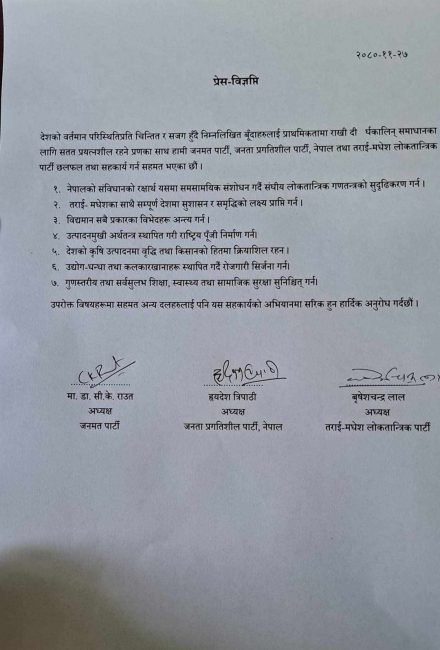 २०८०-११-२७
प्रेस-विज्ञप्ति
देशको वर्तमान परिस्थितिप्रति चिन्तित र सजग हुँदै निम्नलिखित बूँदाहरुलाई प्राथमिकतामा राखी दी र्घकालिन् समाधानका
लागि सतत प्रयत्नशील रहने प्रणका साथ हामी जनमत पार्टी, जनता प्रगतिशील पार्टी, नेपाल तथा तराई-मधेश लोकतान्त्रिक
पार्टी छलफल तथा सहकार्य गर्न सहमत भएका छौं ।
१. नेपालको संविधानको रक्षार्थ यसमा समसामयिक संशोधन गर्दै संघीय लोकतान्त्रिक गणतन्त्रको सुदृढिकरण गर्न ।
२. तराई- मधेशका साथै सम्पूर्ण देशमा सुशासन र समृद्धिको लक्ष्य प्राप्ति गर्न ।
३. विद्यमान सबै प्रकारका विभेदहरू अन्त्य गर्न ।
४. उत्पादनमुखी अर्थतन्त्र स्थापित गरी राष्ट्रिय पूँजी निर्माण गर्न।
५. देशको कृषि उत्पादनमा वृद्धि तथा किसानको हितमा क्रियाशिल रहन ।
६. उद्योग-धन्धा तथा कलकारखानाहरू स्थापित गर्दै रोजगारी सिर्जना गर्न।
७. गुणस्तरीय तथा सर्वसुलभ शिक्षा, स्वास्थ्य तथा सामाजिक सुरक्षा सुनिश्चित् गर्न।
उपरोक्त विषयहरूमा सहमत अन्य दलहरुलाई पनि यस सहकार्यको अभियानमा सरिक हुन हार्दिक अनुरोध गर्दछौं ।
मा. डा. सी.के. राउत हृदयेश त्रिपाठी बृषेशचन्द्र लाल
अध्यक्ष अध्यक्ष अध्यक्ष
जनमत पार्टी जनता प्रगतिशील पार्टी, नेपाल तराई-मधेश लोकतान्त्रिक पार्टी